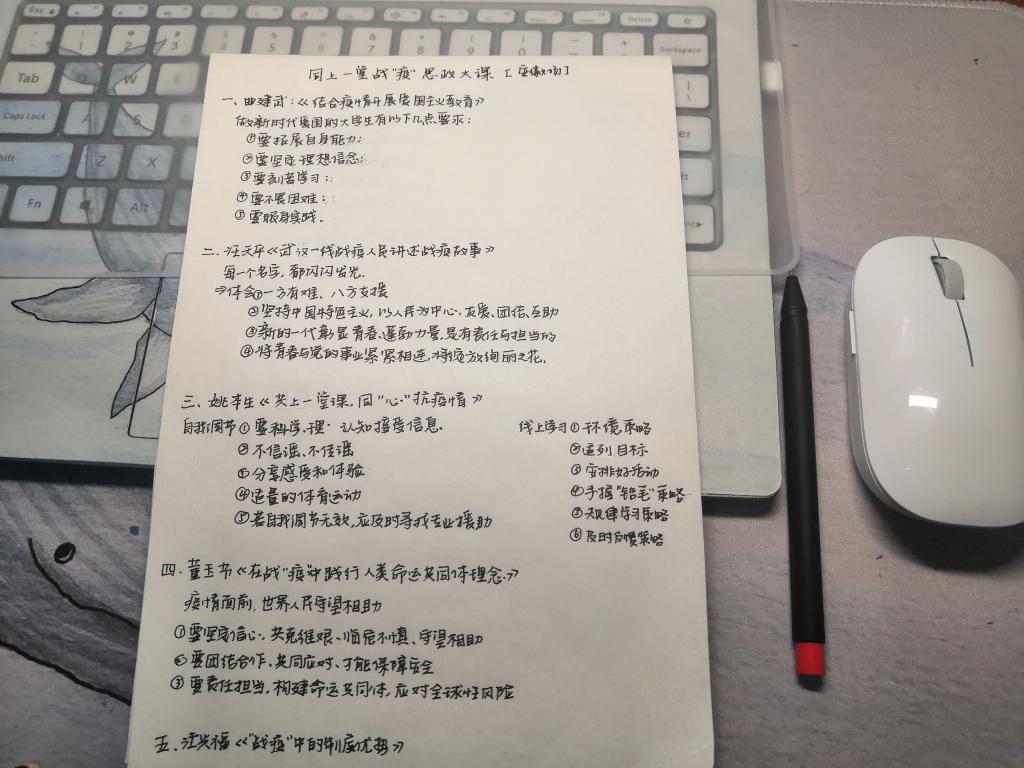 Esc
Delete
Backspace
Tab
Q
W
Caps Lock
A
S
Z
X
Fn
Alt
同上一堂战"疫"思政大课 [安徽场]
一、曲建武:《结合疫情开展爱国主义教育》
做新时代爱国的大学生有以下几点要求:
①要拓展自身能力;
②要坚定理想信念;
③要刻苦学习;
④要不畏困难;
⑤要服身实践.
二、汪天平《武汉一线战疫人员讲述战疫故事》
每一个名字,都闪闪发光.
⇒体会①一方有难、八方支援
②坚持中国特色主义,以人民为中心,友爱、团结、互助
③新的一代彰显青春、蓬勃力量,是有责任与担当的
④将青春与党的事业紧紧相连,将绽放绚丽之花.
三、姚本先《共上一堂课,同"心"抗疫情》
自我调节①要科学、理 认知接受信息.
②不信谣、不传谣
③分享感受和体验
④适量的体育运动
⑤若自我调节无效,应及时寻找专业援助
线上学习①环境策略
②适列目标
③安排好活动
④手握"铅笔"策略
⑤规律学习策略
⑥及时反馈策略
四.董玉节《在战"疫"中践行人类命运共同体理念》
疫情面前,世界人民守望相助
①要坚定信心,共克维艰、临危不惧、守望相助
②要团结合作、共同应对、才能保障安全
③要责任担当,构建命运共同体,应对全球性风险
五.汪兴福《"战疫"中的制度优势》